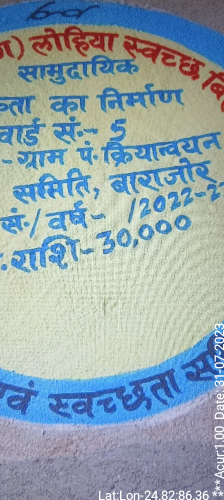 ण) लोहिया स्वच्छ बि
सामुदायिक
कता का निर्माण
वार्ड सं.- 5
-ग्राम पं. क्रियान्वयन
समिति, बाराजोर
सं./वर्ष- /2022-2
.राशि-30,000
वं स्वच्छता स
Lat:Lon-24.82:86.36
Acur:1.00 Date: 31-07-2023